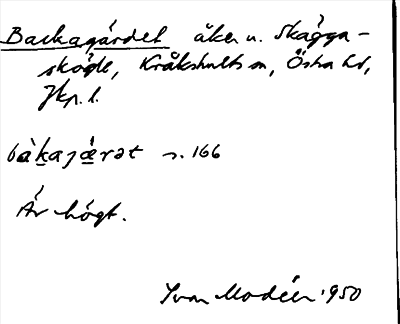 Backagärdet åker n. Skägga-
sköle, Kråkshults sn, Östra hd,
Jkp. l.
bàkajǽrət s. 166
Är högt.
Ivar Modéer 1950